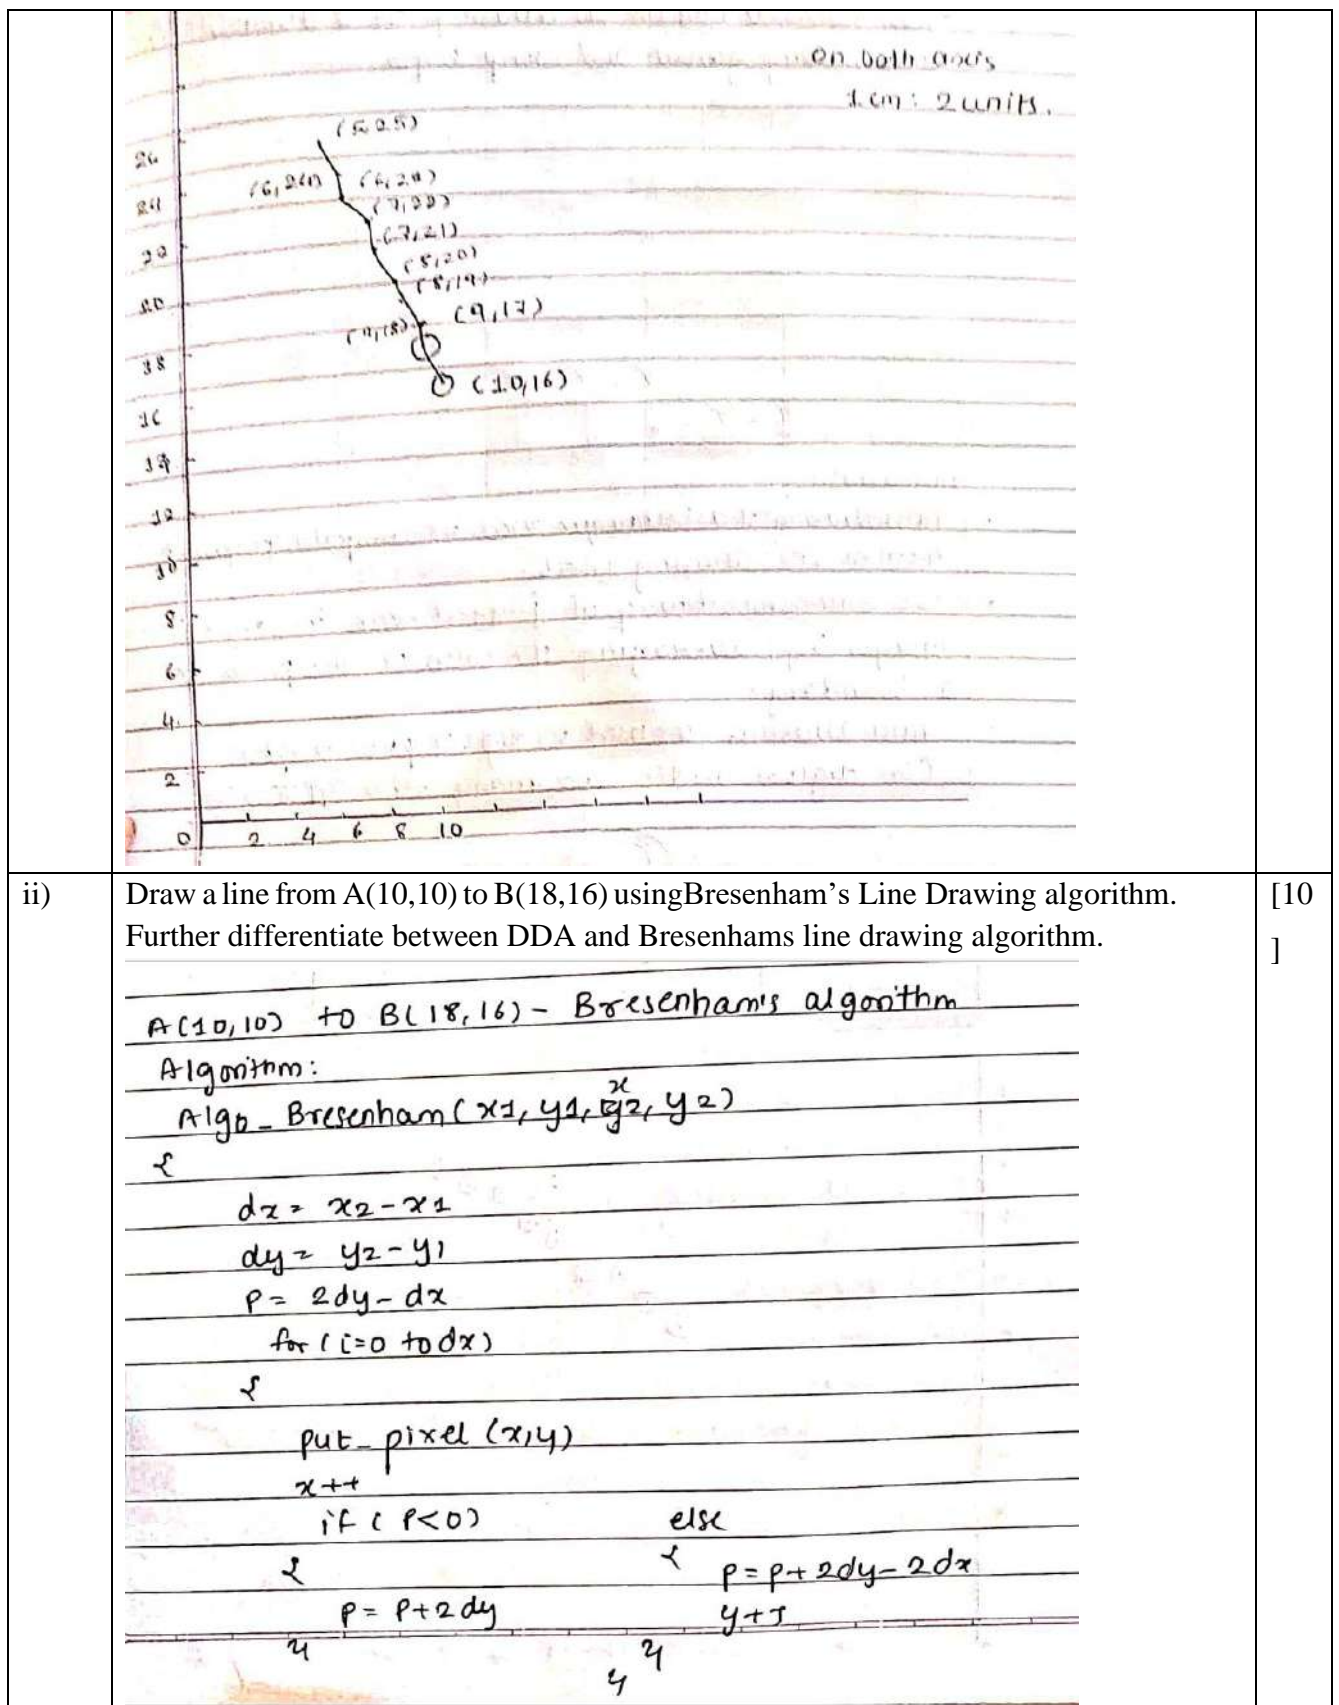 on both axis
1 cm: 2 units.
(5,25)
26
(6,24) (6,24)
24
(7,22)
(7,21)
22
(8,20)
(8,19)
20
(9,17)
(9,18)
38
(10,16)
16
14
12
10
8
6
4
2
0 2 4 6 8 10
ii) Draw a line from A(10,10) to B(18,16) usingBresenham’s Line Drawing algorithm. [10
Further differentiate between DDA and Bresenhams line drawing algorithm. ]
A(10,10) to B(18,16) - Bresenham's algorithm
Algorithm:
x
Algo_Bresenham(x1, y1, y2, y2)
{
dx = x2-x1
dy = y2-y1
P = 2dy-dx
for (i=0 to dx)
{
put_pixel (x,y)
x++
if ( P<0) else
{ { p = p+2dy-2dx
p = P+2dy y++
} }
}